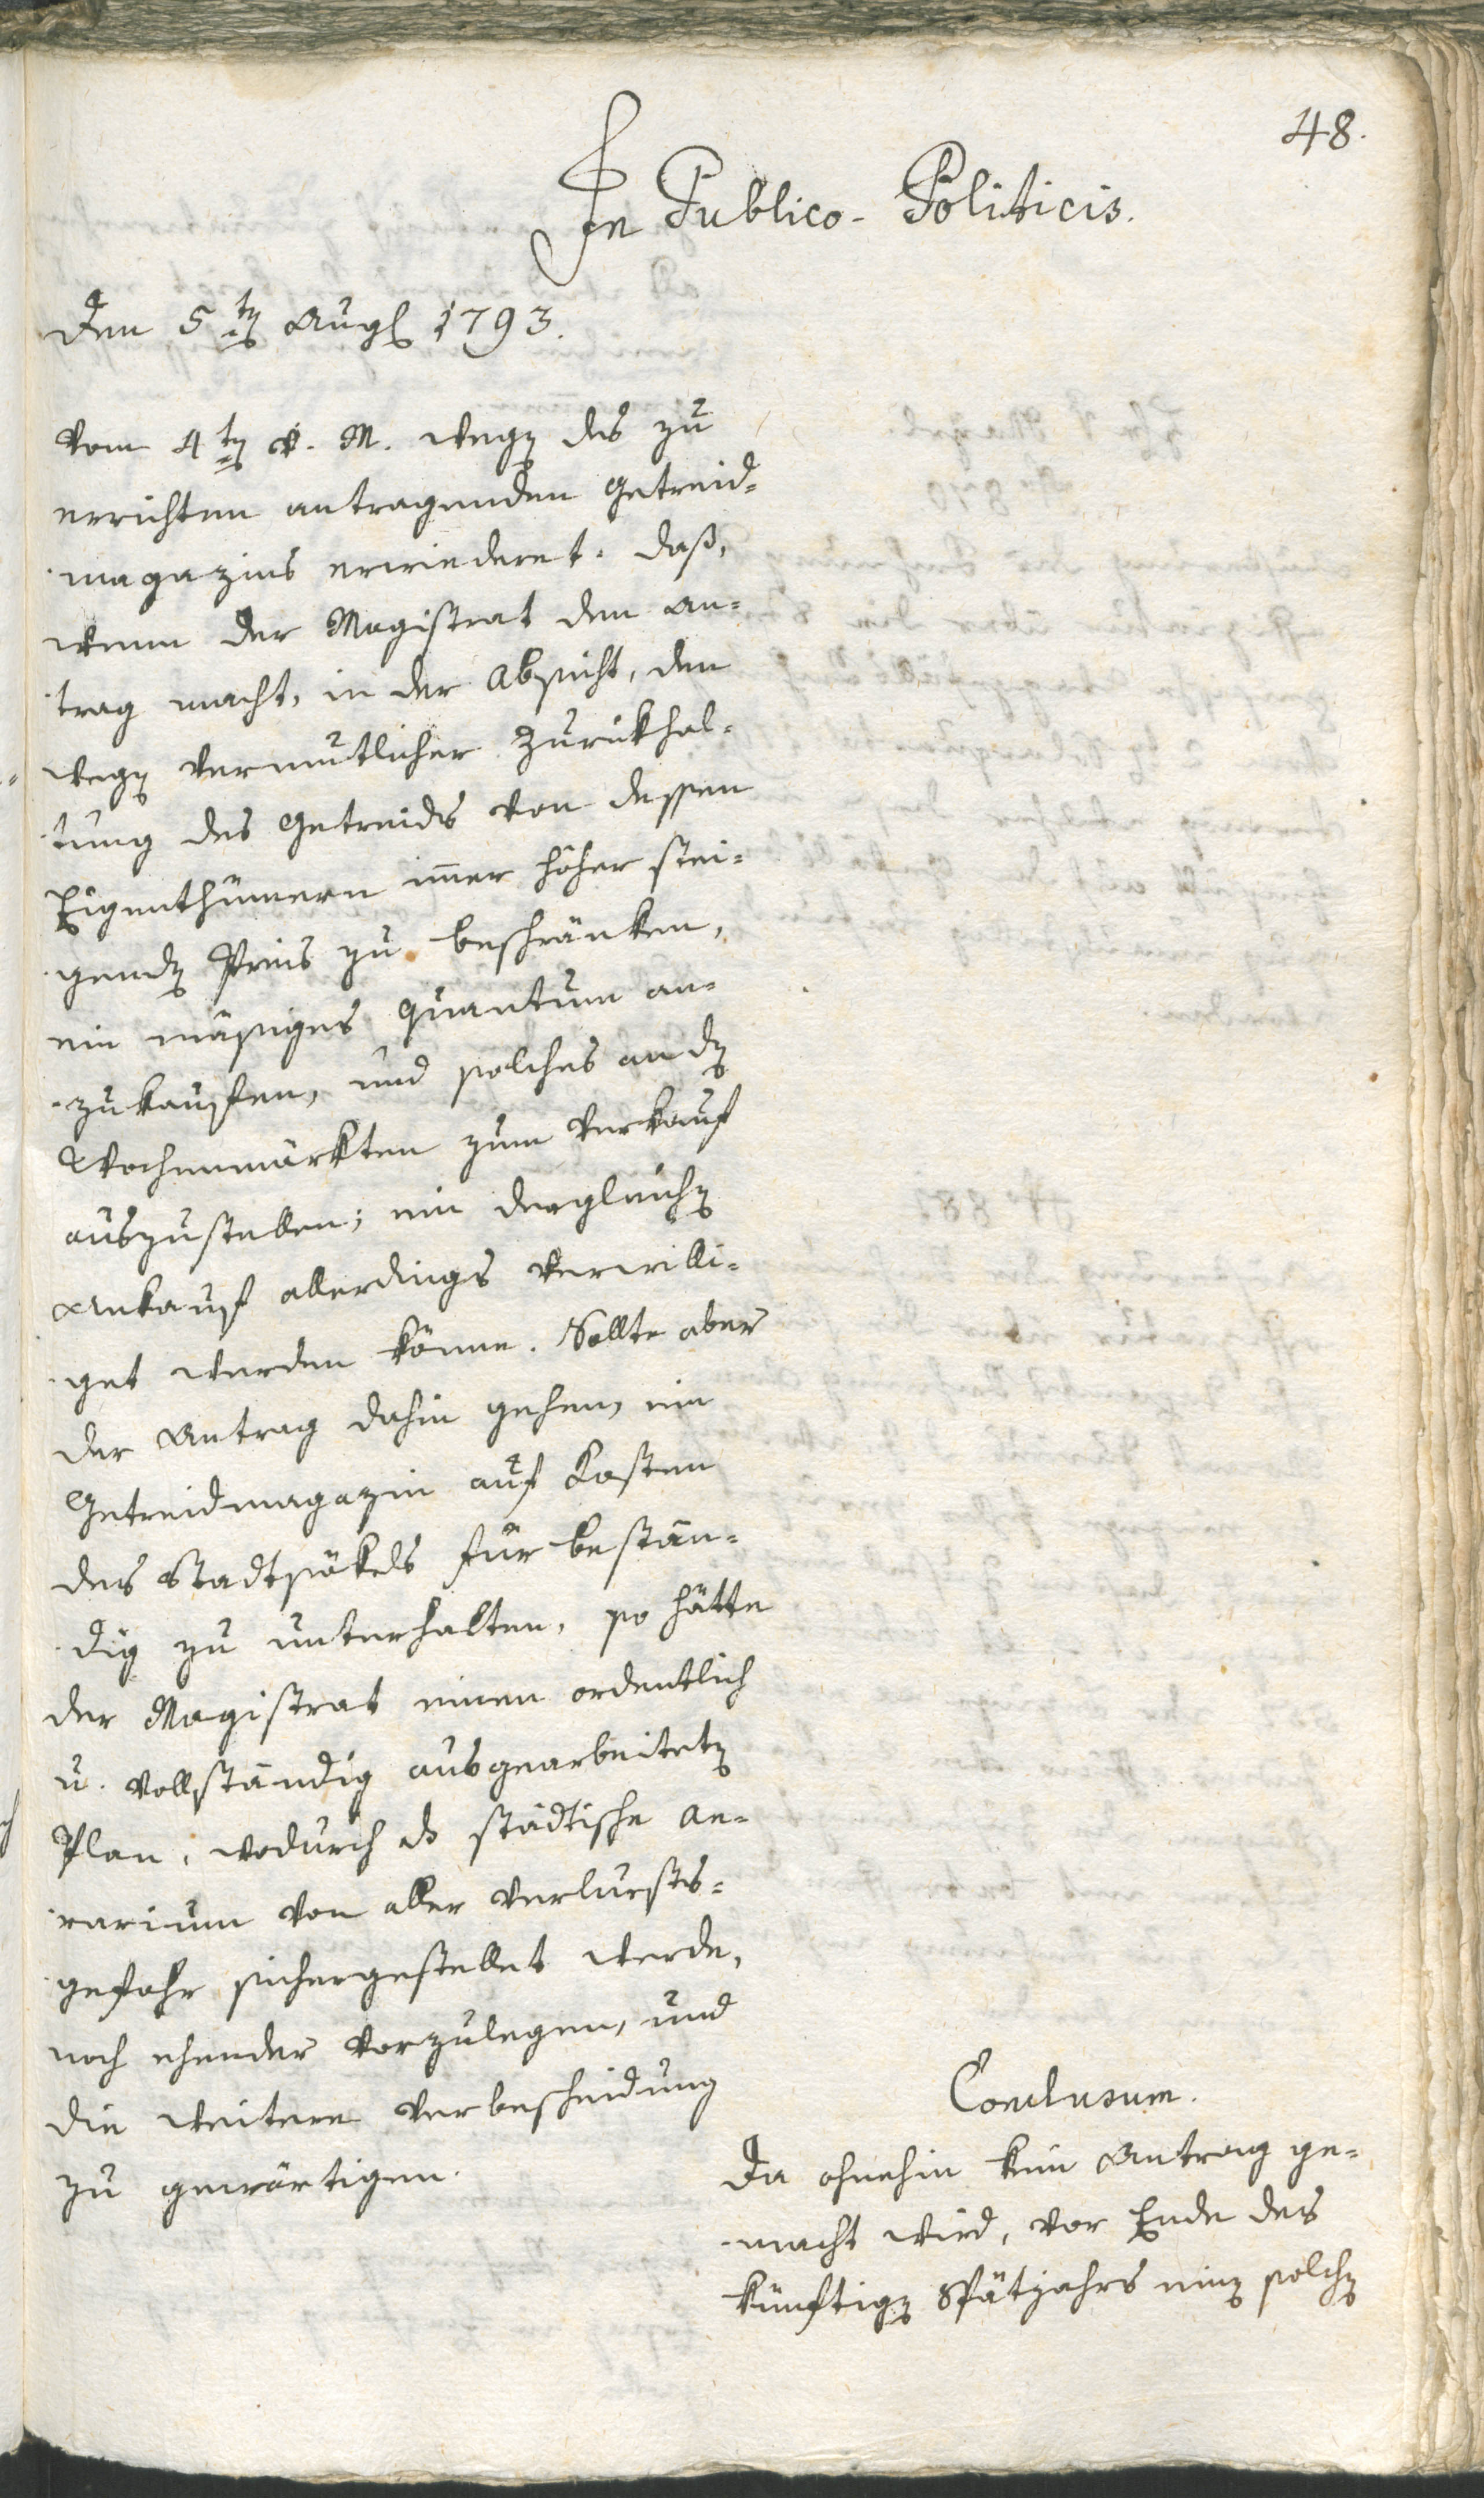 48.
In Publico-Politicis.
Den 5ten Augs 1793.
Vom 4ten v. M. wegen des zu
errichten antragenden Getreid=
magazins erwiederet. daß,
wenn der Magistrat den An=
trag macht, in der Absicht, den
wegen vermutlicher Zurükhal=
tung des Getreids von dessen
Eigenthümern imer höher stei=
genden Preis zu beschränken,
ein mäßiges Quantum an=
zukaufen, und solches an den
Wochenmärkten zum Verkauf
auszustellen; ein dergleichen
Ankauf allerdings verwilli=
get werden könne. Sollte aber
der Antrag dahin gehen, ein
Getreidmagazin auf Kosten
des Stadtsäkels für bestän=
dig zu unterhalten, so hätte
der Magistrat einen ordentlich
u. vollständig ausgearbeiteten
Plan, wodurch das städtische Ae=
rarium von aller Verlursts=
gefahr sichergestellet werde,
noch ehender vorzulegen, und
die weitere Verbescheidung
zu gewärtigen.
Conclusum.
Da ohnehin kein Antrag ge=
macht wird, vor Ende des
künftigen Spätjahrs einen solchen